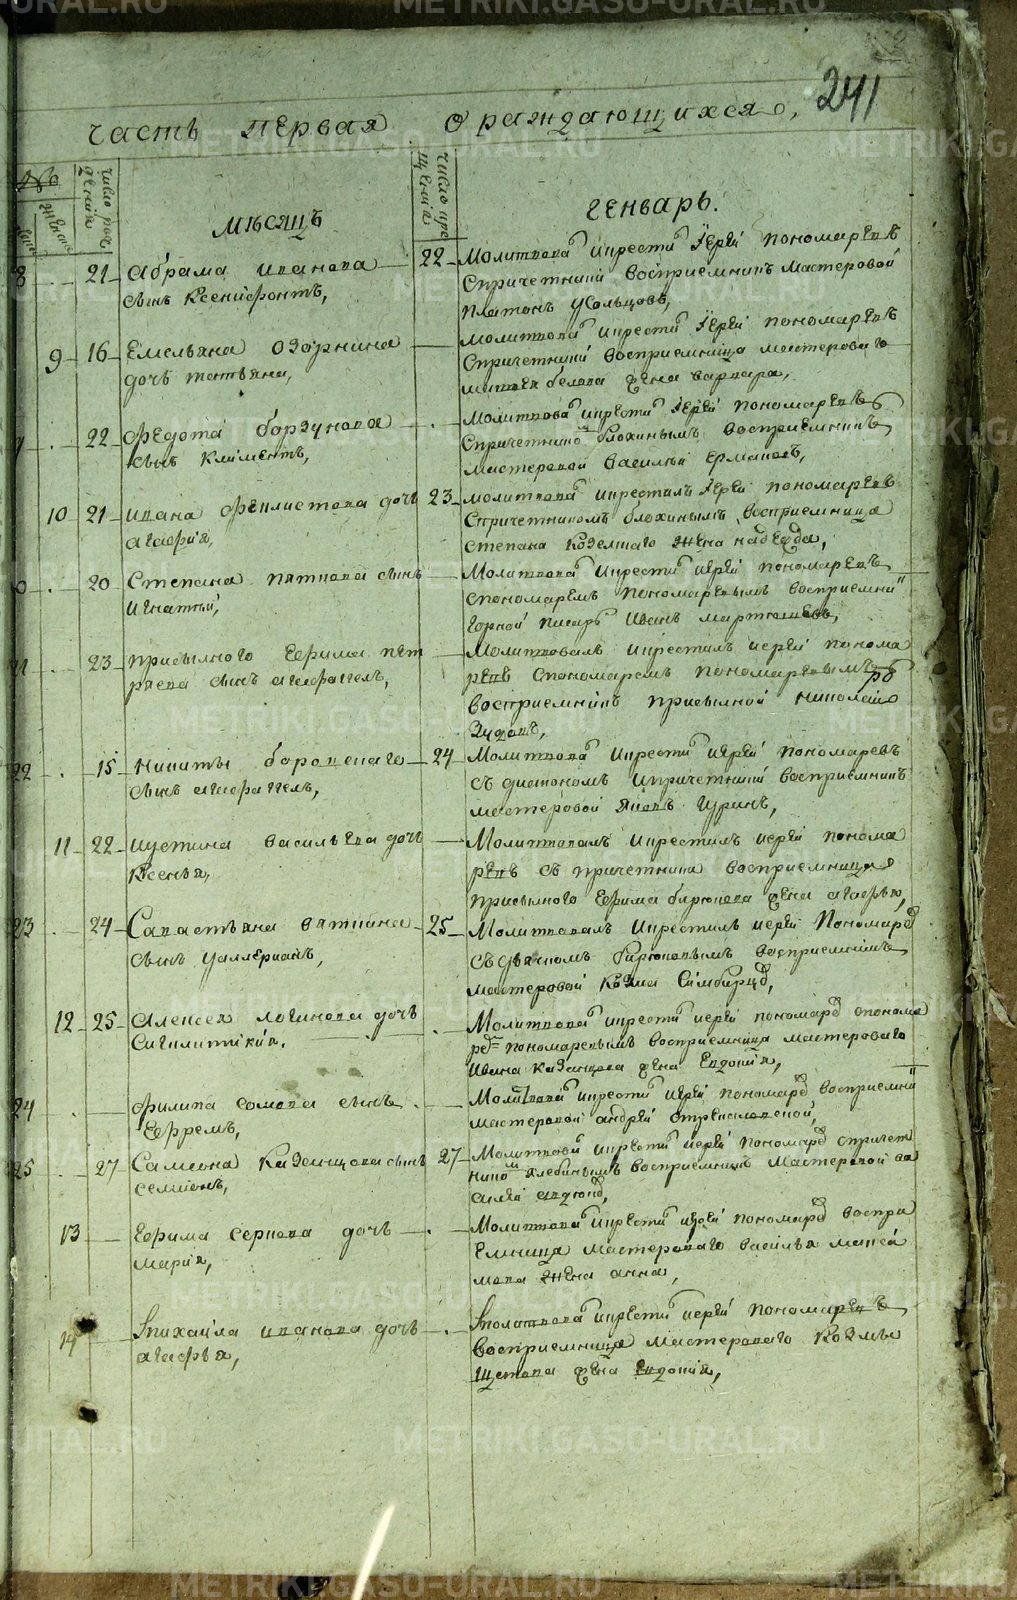 METRIKI.GASO-URAL.RU
241
часть первая о раждающихся,
№
число рож
денiя
мѣсяцъ
число кре
щенiя
генварь.
8 21 Абрама Иванова
сынъ Ксенофонтъ,
22 Молитвова и крести Iерей Пономаревъ
Спричетники восприемникъ мастеровой
Платонъ Усольцовъ,
9 16 Емельяна Озорнина
дочь татьяна,
молитвова и крести Iерей Пономаревъ
Спричетники восприемница мастероваго
белова жена варвара,
22 Федота борзунова
сынъ Климентъ,
молитвова и крести Iерей Пономаревъ
Спричетнико блохинымъ восприемникъ
мастеровой василей Ермаковъ,
10 21 ивана Феклистова дочь
агафiя,
23 молитвова и крестилъ Iерей пономаревъ
Спричетникомъ блохинымъ восприемница
степана жена надежда,
20 Степана пяткова сынъ
Игнатiй,
Молитвова и крести иерей пономаревъ
спономаремъ пономаревымъ восприемни
горной писарь Иванъ мартюшевъ,
23 присылного Ефима пет
ряева сынъ агафагелъ,
Молитвовалъ и крестилъ иерей понома
ревъ спономаремъ пономаревымъ
восприемникъ присылной николай
Зуховъ,
22 15 никиты боровскаго
сынъ агафагелъ,
24 Молитвова и крести иерей пономаревъ
съ диакономъ и причетники восприемникъ
мастеровой Яковъ Гуринъ,
11 22 иустина васильева дочь
Ксенья,
Молитвовалъ и крестилъ иерей понома
ревъ съ причетники восприемница
присылного Ефима бирюкова жена агафья,
23 24 Савастьяна вяткина
сынъ уаллериянъ,
25 Молитвовалъ и крестилъ иерей Пономарев
съ дьячкомъ Бирюковымъ восприемникъ
мастеровой Козма Симбирцов,
12 25 Алексея логинова дочь
Сигклитикiя.
Молитвова и крести иерей пономарев спонома
рем пономаревымъ восприемница мастероваго
Ивана Казанцова жена Евдокия,
24 Филипа сомова сынъ
Ефремъ,
Молитвова и крести иерей пономарев восприемни
мастеровой андрей
25 27 Самсона Казанцова сынъ
семионъ,
27 Молитвова и крести иерей пономарев спричет
нико хлебинымъ восприемникъ мастеровой ва
силей
13 Ефима серкова дочь
мария,
Молитвова и крести иерей пономарев воспри
емница мастероваго василья макси
мова жена анна,
14 михаила иванова дочь
агафья,
молитвова и крести иерей пономаревъ
восприемница мастероваго Козмы
Щетова жена Евдокия,